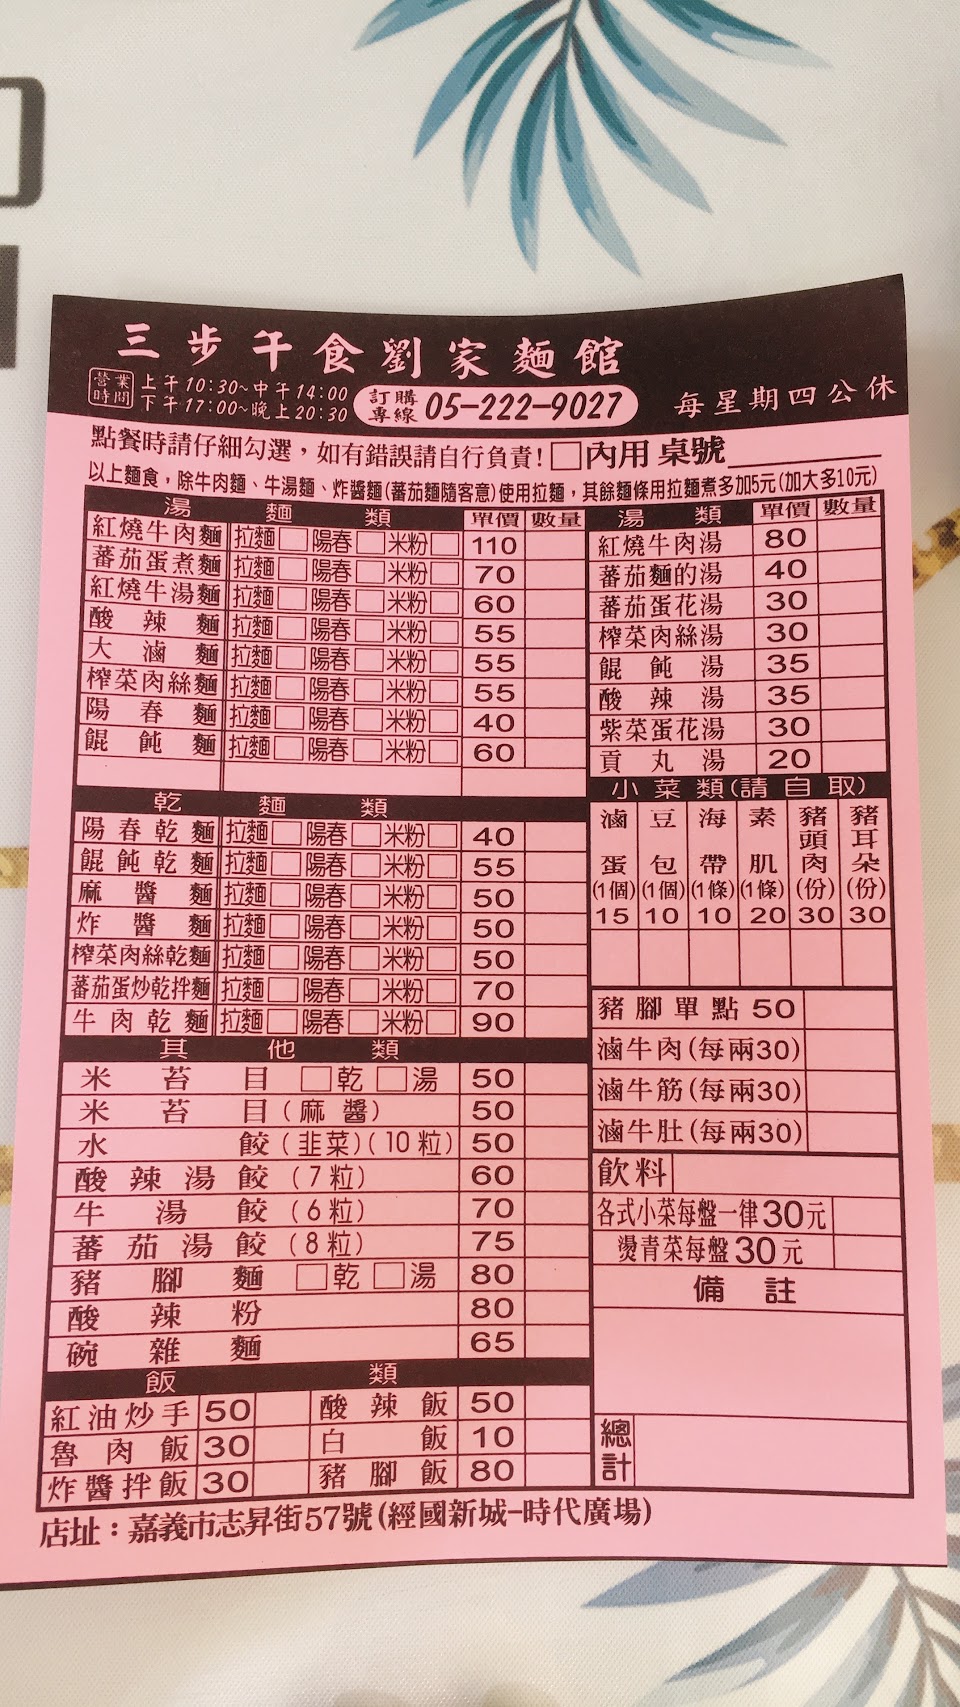 三步午食劉家麵館
營業時間 上午10:30~中午14:00
下午17:00~晚上20:30
訂購專線 05-222-9027
每星期四公休
點餐時請仔細勾選，如有錯誤請自行負責! □內用 桌號
以上麵食，除牛肉麵、牛湯麵、炸醬麵(蕃茄麵隨客意)使用拉麵，其餘麵條用拉麵煮多加5元(加大多10元)
湯麵類 單價 數量
紅燒牛肉麵 拉麵□ 陽春□ 米粉□ 110
蕃茄蛋煮麵 拉麵□ 陽春□ 米粉□ 70
紅燒牛湯麵 拉麵□ 陽春□ 米粉□ 60
酸辣麵 拉麵□ 陽春□ 米粉□ 55
大滷麵 拉麵□ 陽春□ 米粉□ 55
榨菜肉絲麵 拉麵□ 陽春□ 米粉□ 55
陽春麵 拉麵□ 陽春□ 米粉□ 40
餛飩麵 拉麵□ 陽春□ 米粉□ 60
乾麵類
陽春乾麵 拉麵□ 陽春□ 米粉□ 40
餛飩乾麵 拉麵□ 陽春□ 米粉□ 55
麻醬麵 拉麵□ 陽春□ 米粉□ 50
炸醬麵 拉麵□ 陽春□ 米粉□ 50
榨菜肉絲乾麵 拉麵□ 陽春□ 米粉□ 50
蕃茄蛋炒乾拌麵 拉麵□ 陽春□ 米粉□ 70
牛肉乾麵 拉麵□ 陽春□ 米粉□ 90
其他類
米苔目 □乾 □湯 50
米苔目(麻醬) 50
水餃(韭菜)(10粒) 50
酸辣湯餃(7粒) 60
牛湯餃(6粒) 70
蕃茄湯餃(8粒) 75
豬腳麵 □乾 □湯 80
酸辣粉 80
碗雜麵 65
飯類
紅油炒手 50 酸辣飯 50
魯肉飯 30 白飯 10
炸醬拌飯 30 豬腳飯 80
湯類 單價 數量
紅燒牛肉湯 80
蕃茄麵的湯 40
蕃茄蛋花湯 30
榨菜肉絲湯 30
餛飩湯 35
酸辣湯 35
紫菜蛋花湯 30
貢丸湯 20
小菜類(請自取)
滷蛋(1個) 15
豆包(1個) 10
海帶(1條) 10
素肌(1條) 20
豬頭肉(份) 30
豬耳朵(份) 30
豬腳單點 50
滷牛肉(每兩30)
滷牛筋(每兩30)
滷牛肚(每兩30)
飲料
各式小菜每盤一律30元
燙青菜每盤30元
備註
總計
店址：嘉義市志昇街57號(經國新城-時代廣場)